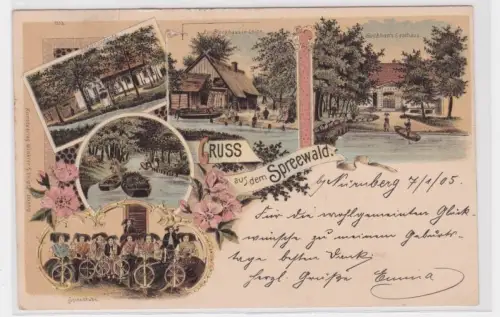 GRUSS
aus dem Spreewald.
Nürnberg 7/1/05.
Für die wohlgemeinten Glück-
wünsche zu meinem Geburts-
tage besten Dank,
herzl. Grüße Emma